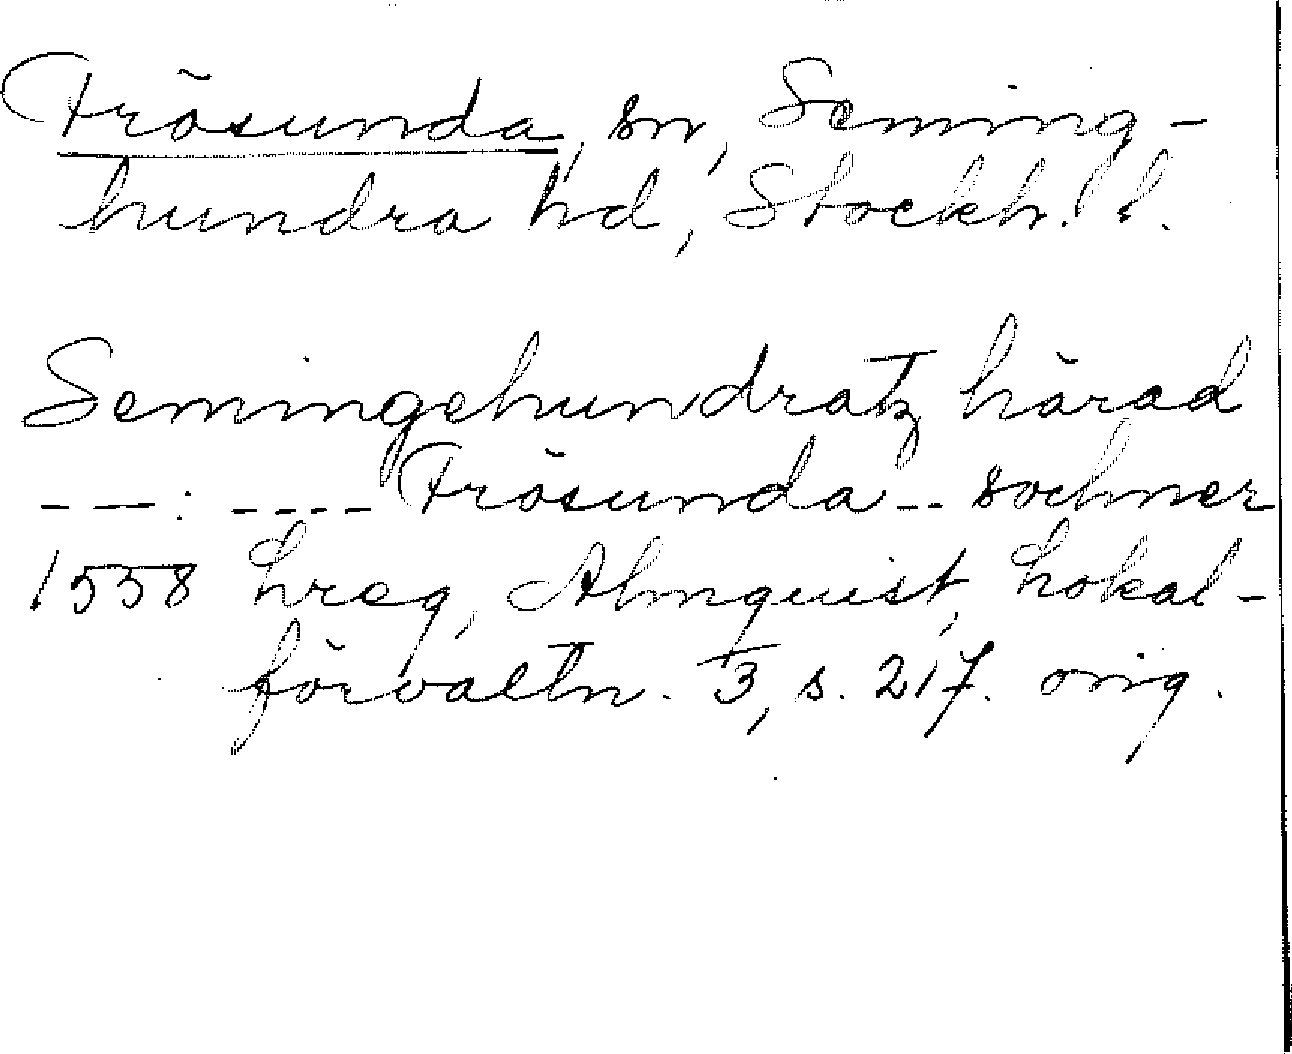 Frösunda, sn, Seming-
hundra hd, Stockh. l.
Semingehundratz härad
- - : - - - - Frösunda - - sochner
1558 Lreg, Almquist, Lokal-
förvaltn. 3, s. 217. orig.